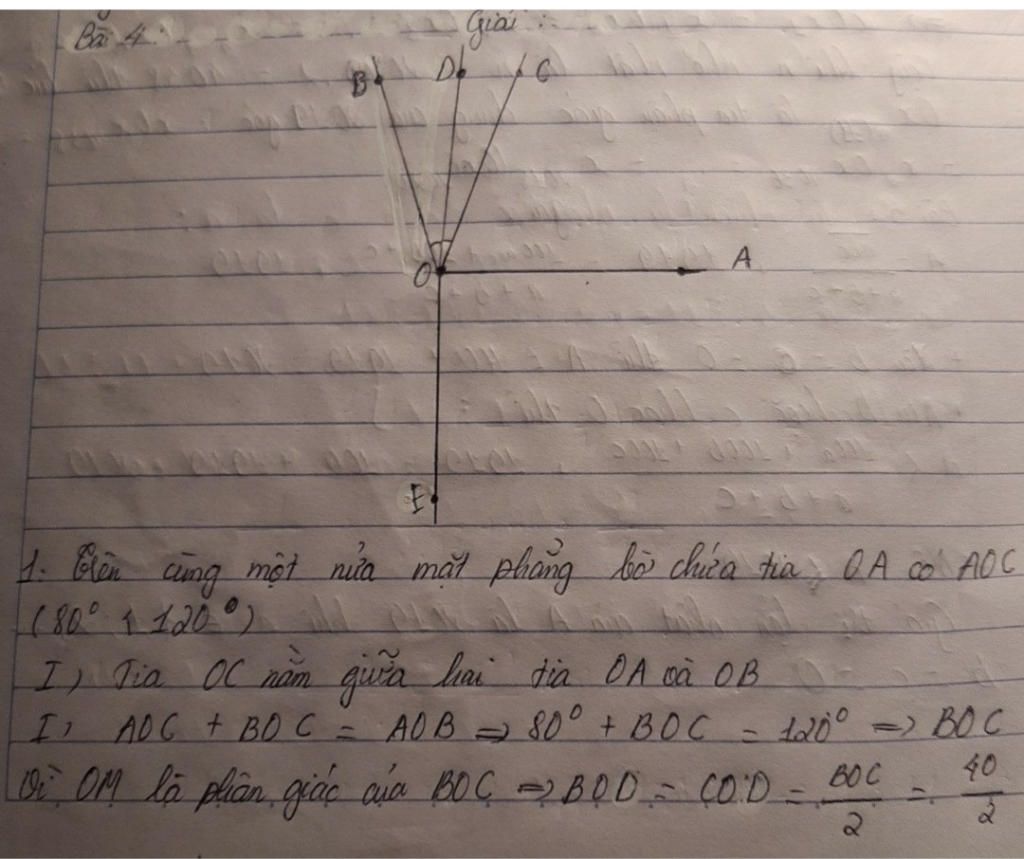 Bài 4:
Giải:
B D C
O A
E
1. Trên cùng một nửa mặt phẳng bờ chứa tia OA có AOC
(80° < 120°)
I) Tia OC nằm giữa hai tia OA và OB
I) AOC + BOC = AOB => 80° + BOC = 120° => BOC
Vì OM là phân giác của BOC => BOD = COD = BOC/2 = 40/2